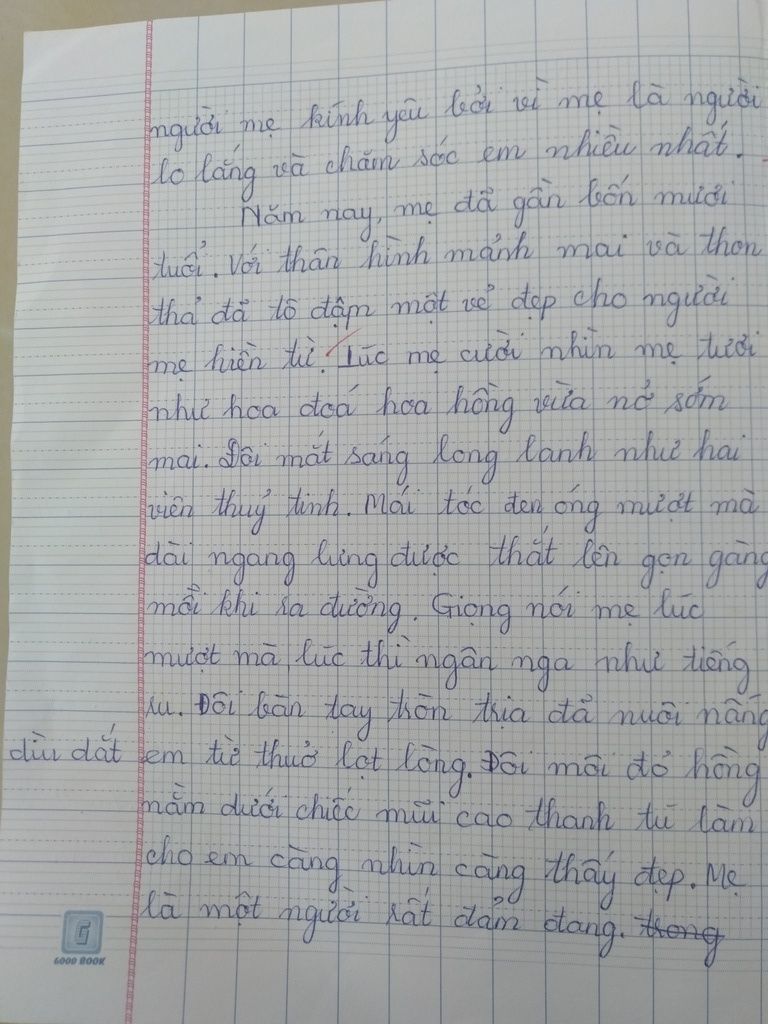 người mẹ kính yêu bởi vì mẹ là người
lo lắng và chăm sóc em nhiều nhất.
Năm nay, mẹ đã gần bốn mươi
tuổi. Với thân hình mảnh mai và thon
thả đã tô đậm một vẻ đẹp cho người
mẹ hiền từ. Lúc mẹ cười nhìn mẹ tươi
như hoa đoá hoa hồng vừa nở sớm
mai. Đôi mắt sáng long lanh như hai
viên thuỷ tinh. Mái tóc đen óng mượt mà
dài ngang lưng được thắt lên gọn gàng
mỗi khi ra đường. Giọng nói mẹ lúc
mượt mà lúc thì ngân nga như tiếng
ru. Đôi bàn tay tròn trịa đã nuôi nấng
dìu dắt em từ thuở lọt lòng. Đôi môi đỏ hồng
nằm dưới chiếc mũi cao thanh tú làm
cho em càng nhìn càng thấy đẹp. Mẹ
là một người rất đảm đang. trong
G
GOOD BOOK